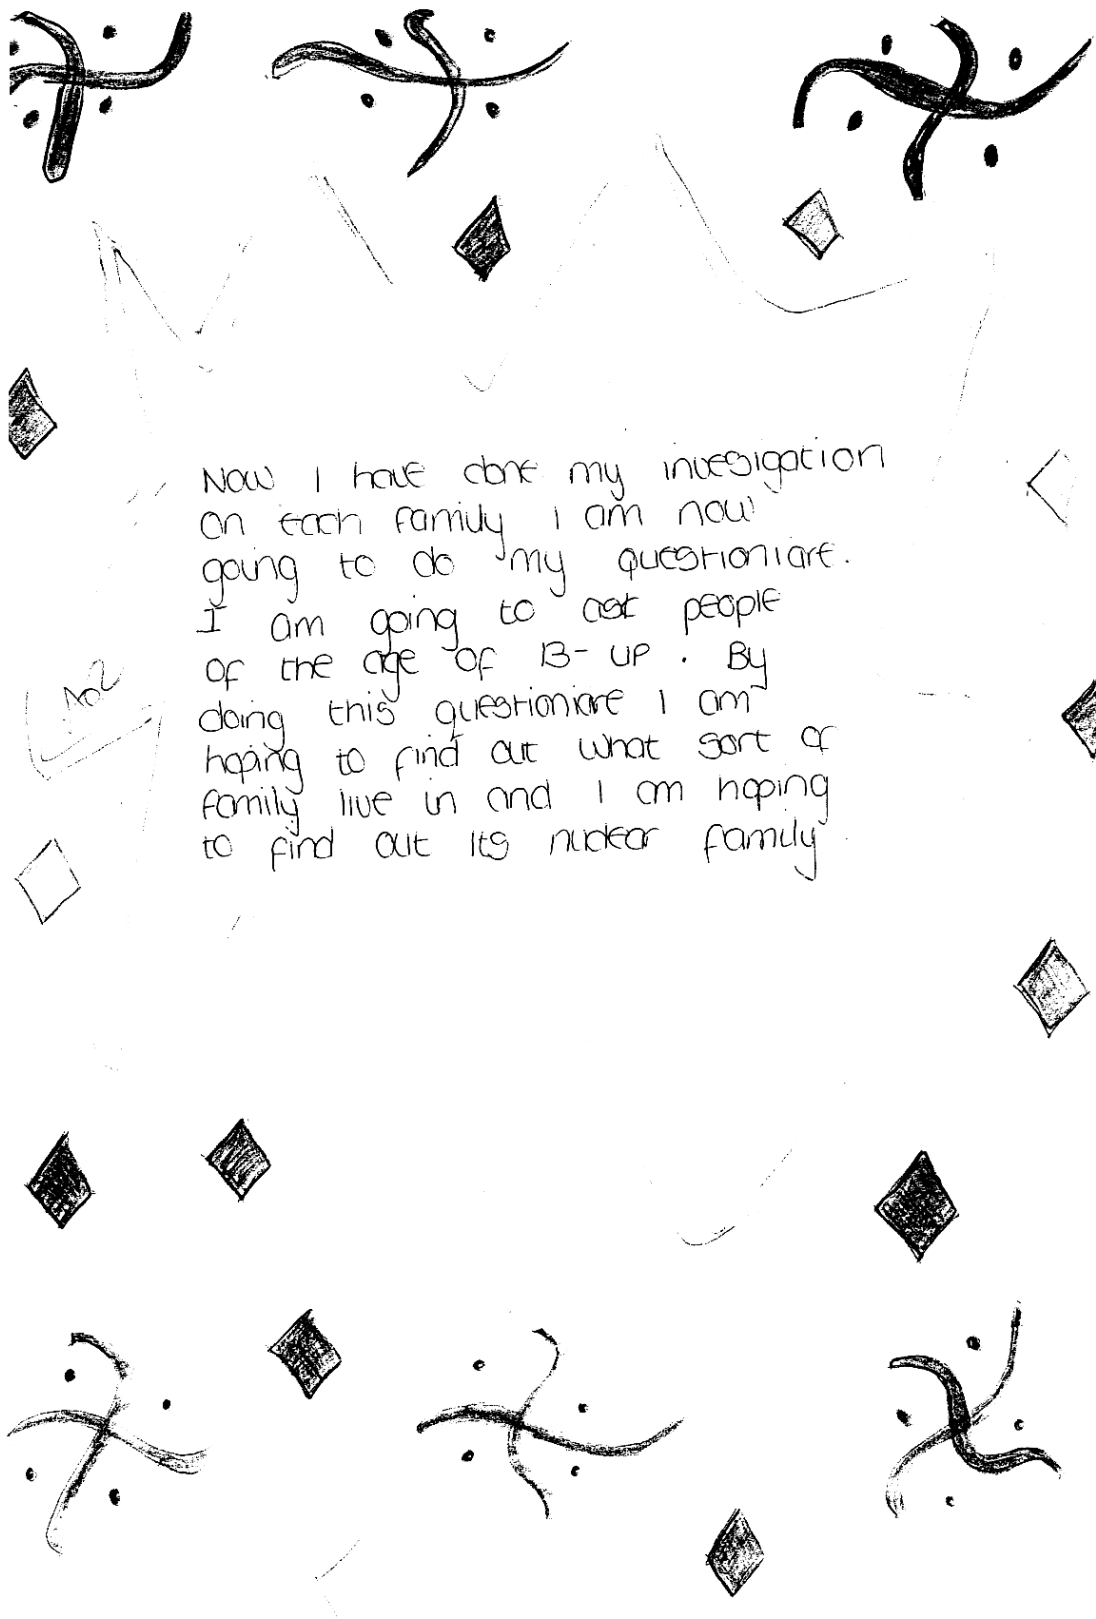 Now I have done my invesigation
on each family I am now
going to do my questioniare.
I am going to ask people
of the age of 13-up. By
doing this questioniare I am
hoping to find out what sort of
family live in and I am hoping
to find out its nuclear family